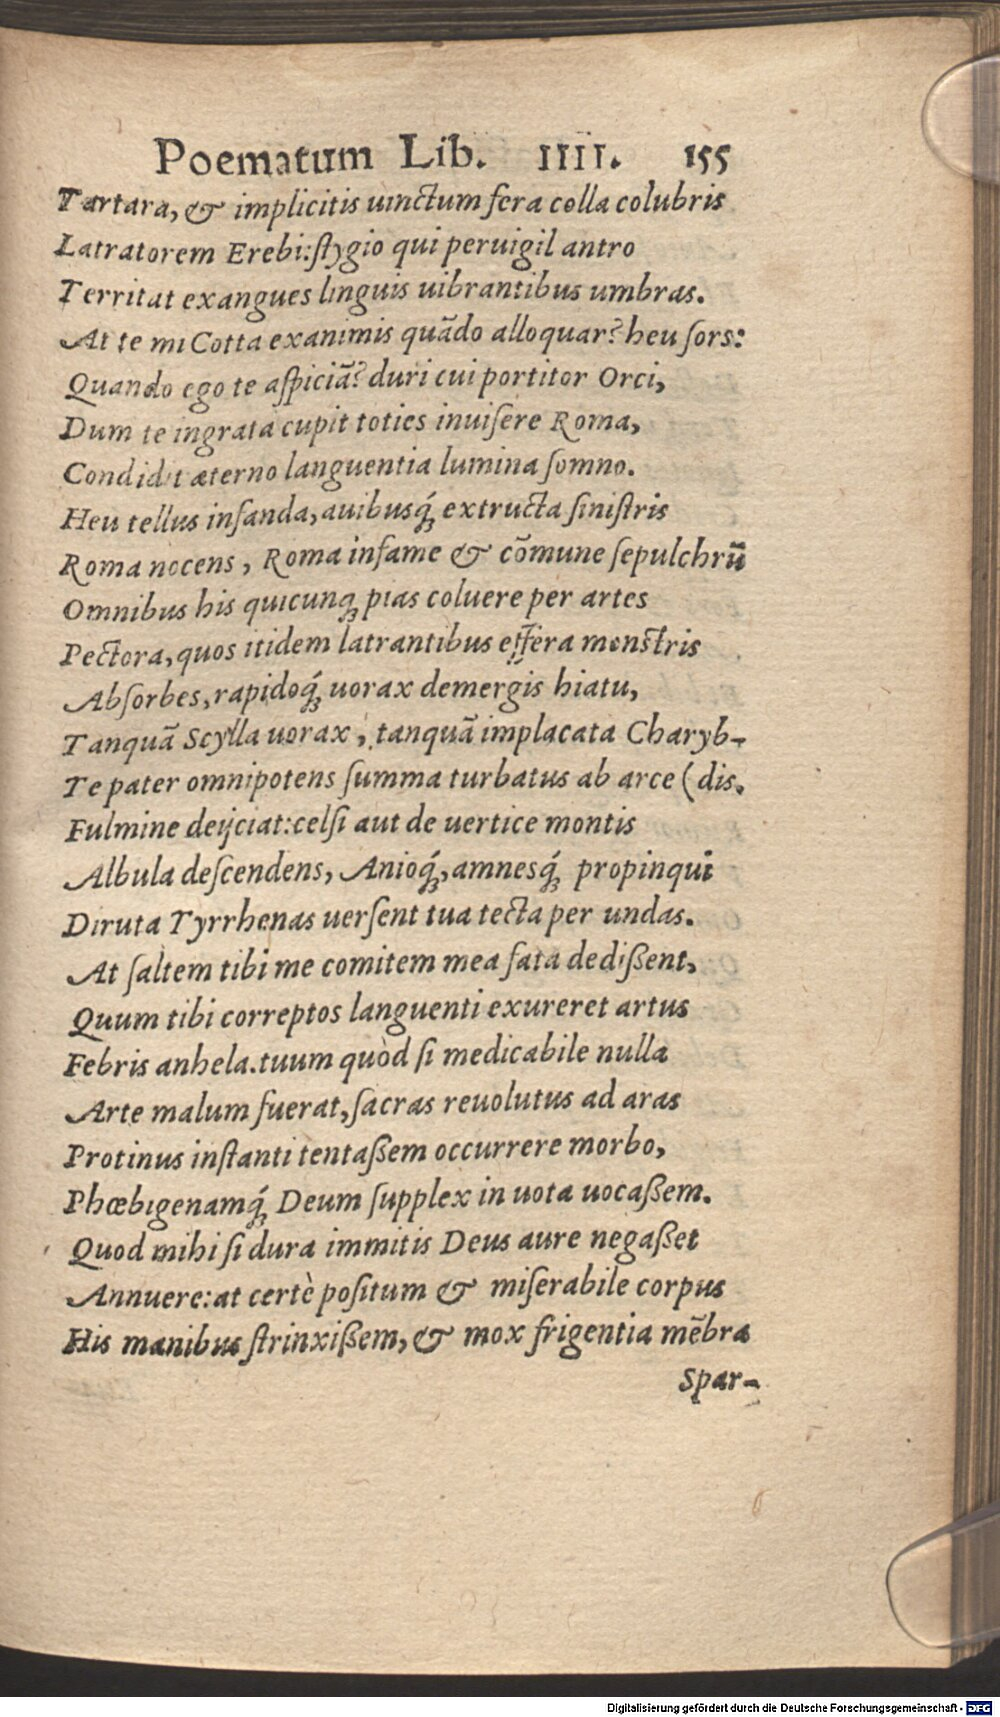 Poematum Lib. IIII. 155
Tartara, & implicitis uinctum fera colla colubris
Latratorem Erebi: stygio qui peruigil antro
Territat exangues linguis uibrantibus umbras.
At te mi Cotta exanimis quādo alloquar? heu sors:
Quando ego te aspiciā? duri cui portitor Orci,
Dum te ingrata cupit toties inuisere Roma,
Condidit æterno languentia lumina somno.
Heu tellus infanda, auibusq́; extructa sinistris
Roma nocens, Roma infame & cōmune sepulchrū
Omnibus his quicunq; pias coluere per artes
Pectora, quos itidem latrantibus effera monstris
Absorbes, rapidoq́; uorax demergis hiatu,
Tanquā Scylla uorax, tanquā implacata Charyb-
Te pater omnipotens summa turbatus ab arce (dis.
Fulmine deijciat: celsi aut de uertice montis
Albula descendens, Anioq́;, amnesq́; propinqui
Diruta Tyrrhenas uersent tua tecta per undas.
At saltem tibi me comitem mea fata dedißent,
Quum tibi correptos languenti exureret artus
Febris anhela. tuum quòd si medicabile nulla
Arte malum fuerat, sacras reuolutus ad aras
Protinus instanti tentaßem occurrere morbo,
Phœbigenamq́; Deum supplex in uota uocaßem.
Quod mihi si dura immitis Deus aure negaßet
Annuere: at certè positum & miserabile corpus
His manibus strinxißem, & mox frigentia mēbra
Spar-
Digitalisierung gefördert durch die Deutsche Forschungsgemeinschaft - DFG